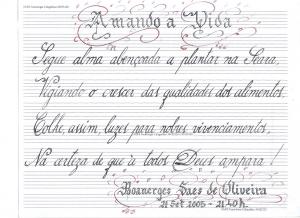 Amando a Vida
Segue alma abençoada a plantar na Seara,
Vigiando o crescer das qualidades dos alimentos,
Colhe, assim, luzes para nobres vivenciamentos,
Na certeza de que à todos Deus ampara!
Boanerges Saes de Oliveira
21 Set 2005 - 21:40 h.